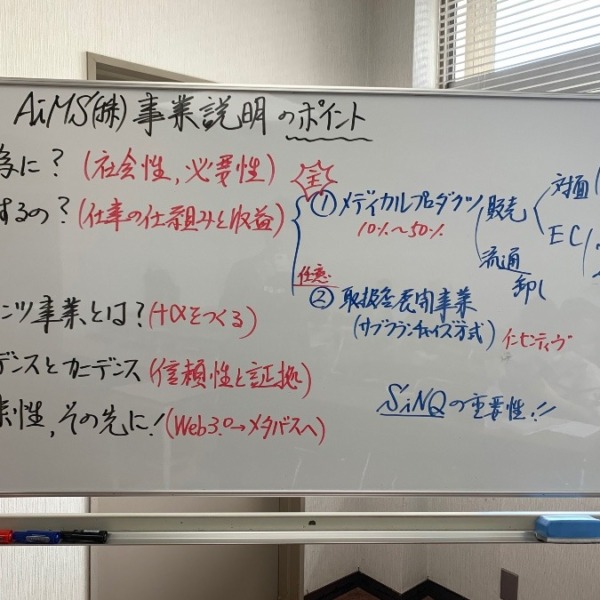 AiMS(株)事業説明のポイント
為に? (社会性, 必要性)
するの? (仕事の仕組みと収益)
ンツ事業とは? (+αをつくる)
デンスとカニデンス (信頼性と証拠)
来性, その先に! (Web3.0→メタバスへ)
主
① メディカルプロダクツ
10%~50%
販売
対面
EC
流通
卸し
任意
② 取扱店展開事業
(サブフランチャイズ方式) インセンティヴ
SiNQの重要性!!